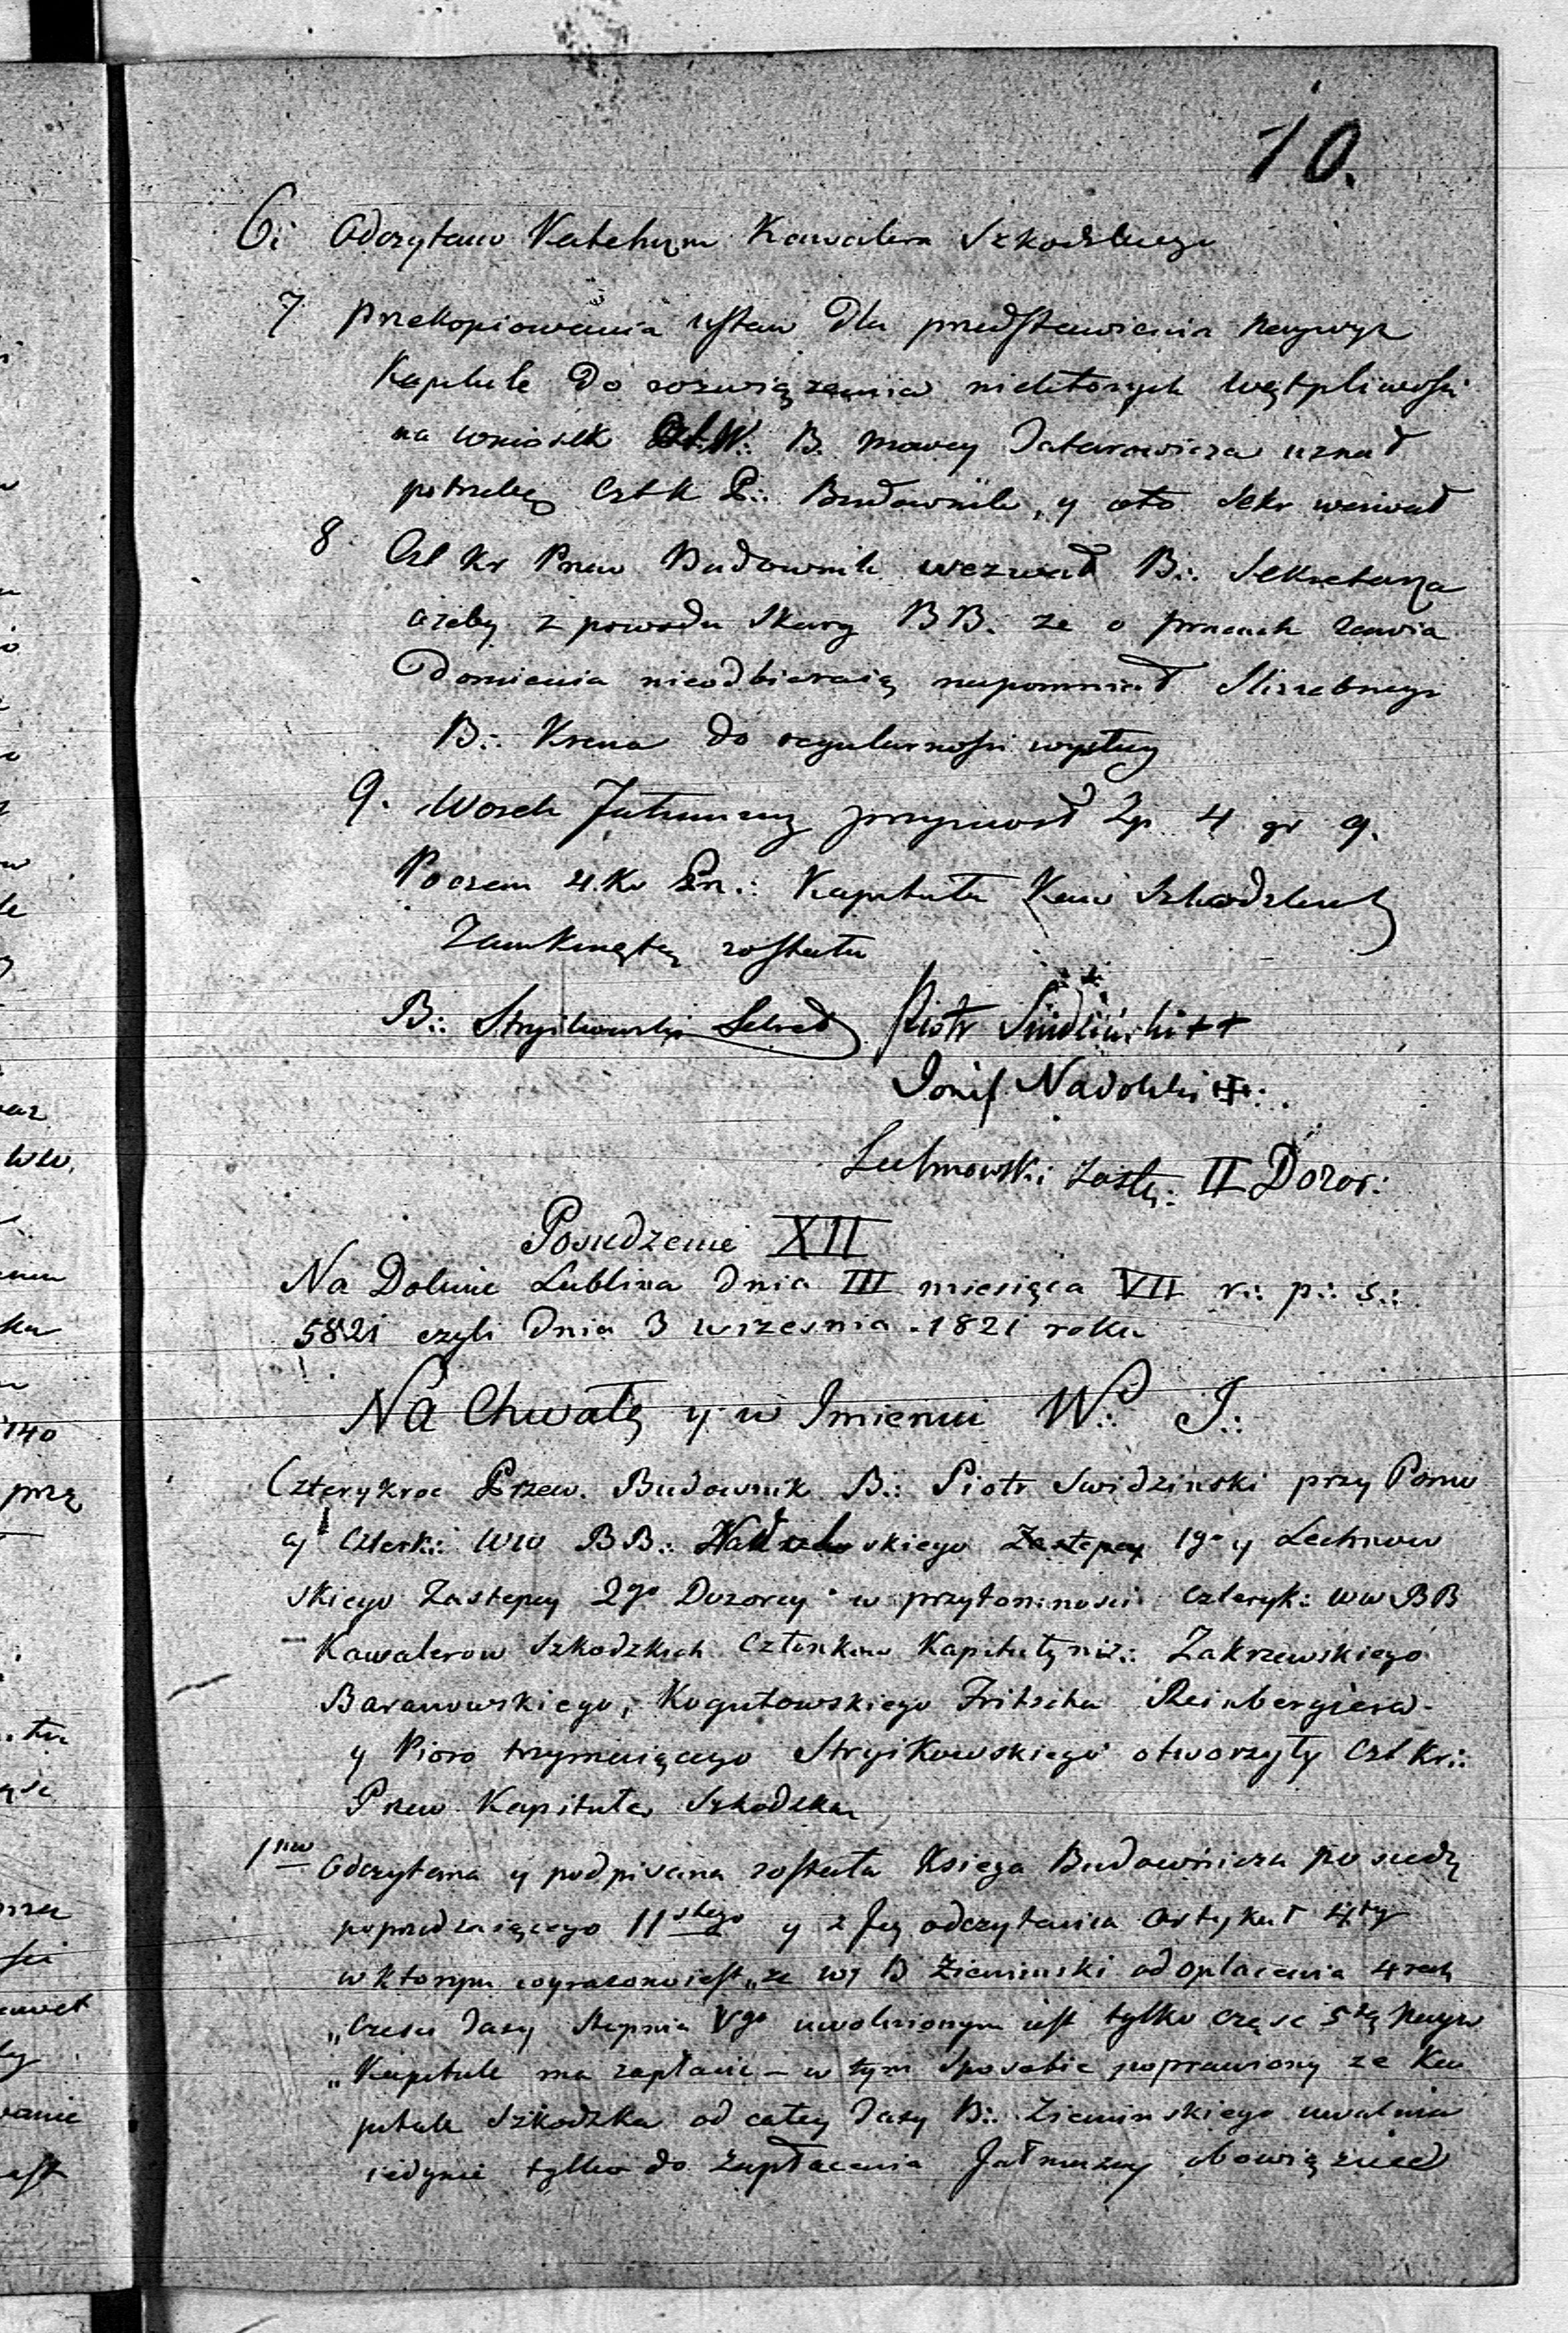 10.
6: Odczytano Katehizm Kawalera Szkodzkiego
7 przekopiowania ustaw dla przedstawienia Naywyz
Kapitule do rozwiązania niektorych wątpliwosci
na wniosek B. Mowcy Tatarowicza uznał
potrzebę Czt K P:. Budownik, y oto Sekr wezwał
8 Czt Kr Przew Budownik wezwał B:. Sekretarza
ażeby z powodu Skarg BB. ze o pracach zawia
domienia nieodbieraią napomniał Słuzebnego
B:. Krena do regularnosci wysług
9. Worek Jałmużny przyniosł Zp 4 gr 9.
Poczem 4.Kr Prz.: Kapituła Kaw Szkodzkich
zamkniętą została
B:. Stryikowski Sekret Piotr Swidziński ++
Josef Nadolski
Lechnowski Zastę: II Dozor:
Posiedzenie XII
Na Dolinie Lublina dnia III miesiąca VII r:. p:. s:.
5821 czyli dnia 3 wrzesnia 1821 roku
Na Chwałę y w Imieniu W:. J:.
Czterykroc Przew. Budownik B:. Piotr Swidzinski przy Pomo
cy Czterk: WW BB:. skiego Zastępcy 1go y Lechnow
skiego Zastępcy 2go Dozorcy w przytomnosci czteryk: WW BB
Kawalerow Szkodzkich Członkow Kapituły niż:. Zakrzewskiego
Baranowskiego, Kogutowskiego Fritscha Reinbergiera
y Pioro trzymaiącego Stryikowskiego otworzyły Czt Kr:.
Przew Kapituła Szkodzka
1mo Odczytana y podpisana została Księga Budownicza posiedz
poprzedzaiącego 11stego y z Jey odczytania Artykuł 4ty
w ktorym wyrazono iest „ze W; B Zieminski od opłacenia 4rech
„Częsci Taxy Stopnia Vgo uwolnionym iest tylko częsc 5tą Nayw
„Kapitule ma zapłacic – w tym Sposobie poprawiony ze Ka
pituła Szkodzka od całey Taxy B:. Zieminskiego uwalnia
iedynie tylko do zapłacenia Jałmuzny obowiązuiąc